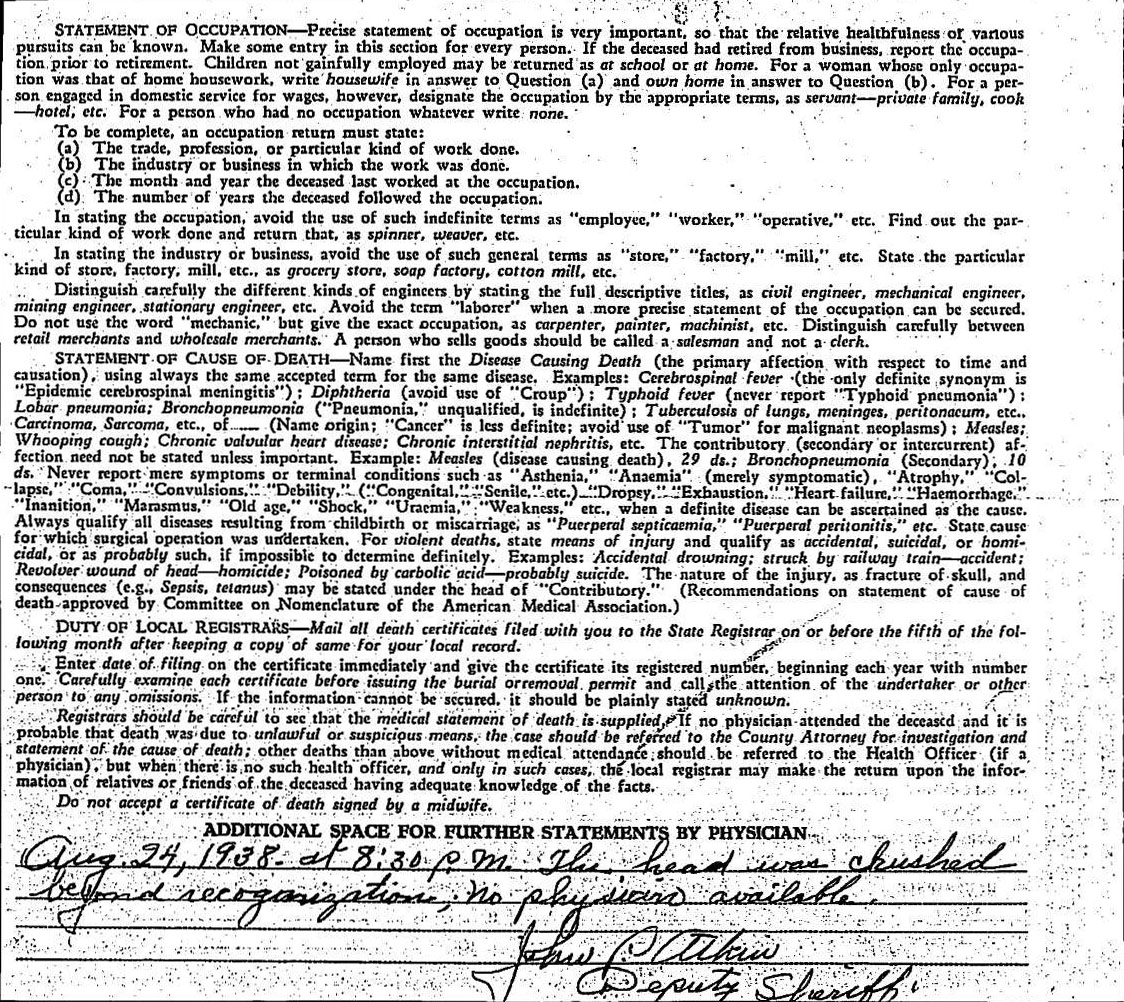 STATEMENT OF OCCUPATION—Precise statement of occupation is very important, so that the relative healthfulness of various
pursuits can be known. Make some entry in this section for every person. If the deceased had retired from business, report the occupa-
tion prior to retirement. Children not gainfully employed may be returned as at school or at home. For a woman whose only occupa-
tion was that of home housework, write housewife in answer to Question (a) and own home in answer to Question (b). For a per-
son engaged in domestic service for wages, however, designate the occupation by the appropriate terms, as servant—private family, cook
—hotel, etc. For a person who had no occupation whatever write none.
To be complete, an occupation return must state:
(a) The trade, profession, or particular kind of work done.
(b) The industry or business in which the work was done.
(c) The month and year the deceased last worked at the occupation.
(d) The number of years the deceased followed the occupation.
In stating the occupation, avoid the use of such indefinite terms as "employee," "worker," "operative," etc. Find out the par-
ticular kind of work done and return that, as spinner, weaver, etc.
In stating the industry or business, avoid the use of such general terms as "store," "factory," "mill," etc. State the particular
kind of store, factory, mill, etc., as grocery store, soap factory, cotton mill, etc.
Distinguish carefully the different kinds of engineers by stating the full descriptive titles, as civil engineer, mechanical engineer,
mining engineer, stationary engineer, etc. Avoid the term "laborer" when a more precise statement of the occupation can be secured.
Do not use the word "mechanic," but give the exact occupation, as carpenter, painter, machinist, etc. Distinguish carefully between
retail merchants and wholesale merchants. A person who sells goods should be called a salesman and not a clerk.
STATEMENT OF CAUSE OF DEATH—Name first the Disease Causing Death (the primary affection with respect to time and
causation), using always the same accepted term for the same disease. Examples: Cerebrospinal fever (the only definite synonym is
"Epidemic cerebrospinal meningitis"); Diphtheria (avoid use of "Croup"); Typhoid fever (never report "Typhoid pneumonia");
Lobar pneumonia; Bronchopneumonia ("Pneumonia," unqualified, is indefinite); Tuberculosis of lungs, meninges, peritonaeum, etc.,
Carcinoma, Sarcoma, etc., of...... (Name origin; "Cancer" is less definite; avoid use of "Tumor" for malignant neoplasms); Measles;
Whooping cough; Chronic valvular heart disease; Chronic interstitial nephritis, etc. The contributory (secondary or intercurrent) af-
fection need not be stated unless important. Example: Measles (disease causing death), 29 ds.; Bronchopneumonia (Secondary), 10
ds. Never report mere symptoms or terminal conditions such as "Asthenia," "Anaemia" (merely symptomatic), "Atrophy," "Col-
lapse," "Coma," "Convulsions," "Debility," ("Congenital," "Senile," etc.) "Dropsy," "Exhaustion," "Heart failure," "Haemorrhage,"
"Inanition," "Marasmus," "Old age," "Shock," "Uraemia," "Weakness," etc., when a definite disease can be ascertained as the cause.
Always qualify all diseases resulting from childbirth or miscarriage, as "Puerperal septicaemia," "Puerperal peritonitis," etc. State cause
for which surgical operation was undertaken. For violent deaths, state means of injury and qualify as accidental, suicidal, or homi-
cidal, or as probably such, if impossible to determine definitely. Examples: Accidental drowning; struck by railway train—accident;
Revolver wound of head—homicide; Poisoned by carbolic acid—probably suicide. The nature of the injury, as fracture of skull, and
consequences (e.g., Sepsis, tetanus) may be stated under the head of "Contributory." (Recommendations on statement of cause of
death approved by Committee on Nomenclature of the American Medical Association.)
DUTY OF LOCAL REGISTRARS—Mail all death certificates filed with you to the State Registrar on or before the fifth of the fol-
lowing month after keeping a copy of same for your local record.
Enter date of filing on the certificate immediately and give the certificate its registered number, beginning each year with number
one. Carefully examine each certificate before issuing the burial or removal permit and call the attention of the undertaker or other
person to any omissions. If the information cannot be secured, it should be plainly stated unknown.
Registrars should be careful to see that the medical statement of death is supplied. If no physician attended the deceased and it is
probable that death was due to unlawful or suspicious means, the case should be referred to the County Attorney for investigation and
statement of the cause of death; other deaths than above without medical attendance should be referred to the Health Officer (if a
physician), but when there is no such health officer, and only in such cases, the local registrar may make the return upon the infor-
mation of relatives or friends of the deceased having adequate knowledge of the facts.
Do not accept a certificate of death signed by a midwife.
ADDITIONAL SPACE FOR FURTHER STATEMENTS BY PHYSICIAN
Aug. 24, 1938. at 8:30 P.M. The head was chushed
beyond recoganization, no physician available.
John P Atkin
Deputy Sheriff.